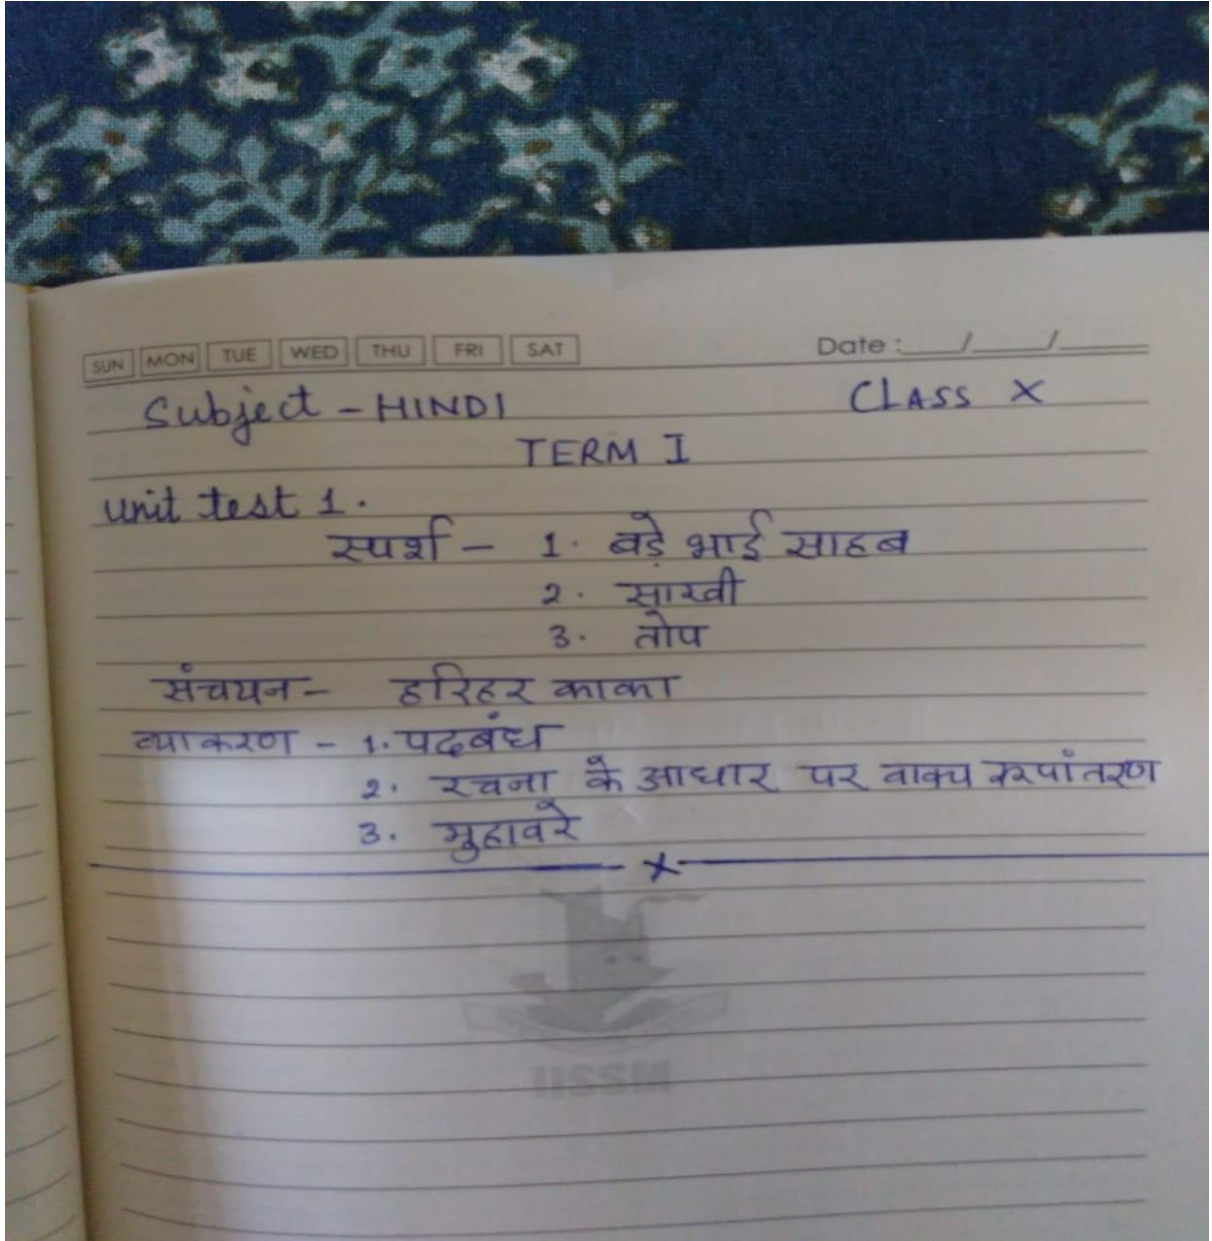 SUN MON TUE WED THU FRI SAT Date : __/__/__
Subject - HINDI CLASS X
TERM I
Unit test 1.
स्पर्श - 1. बड़े भाई साहब
2. साखी
3. तोप
संचयन - हरिहर काका
व्याकरण - 1. पदबंध
2. रचना के आधार पर वाक्य रूपांतरण
3. मुहावरे
x
IISSM